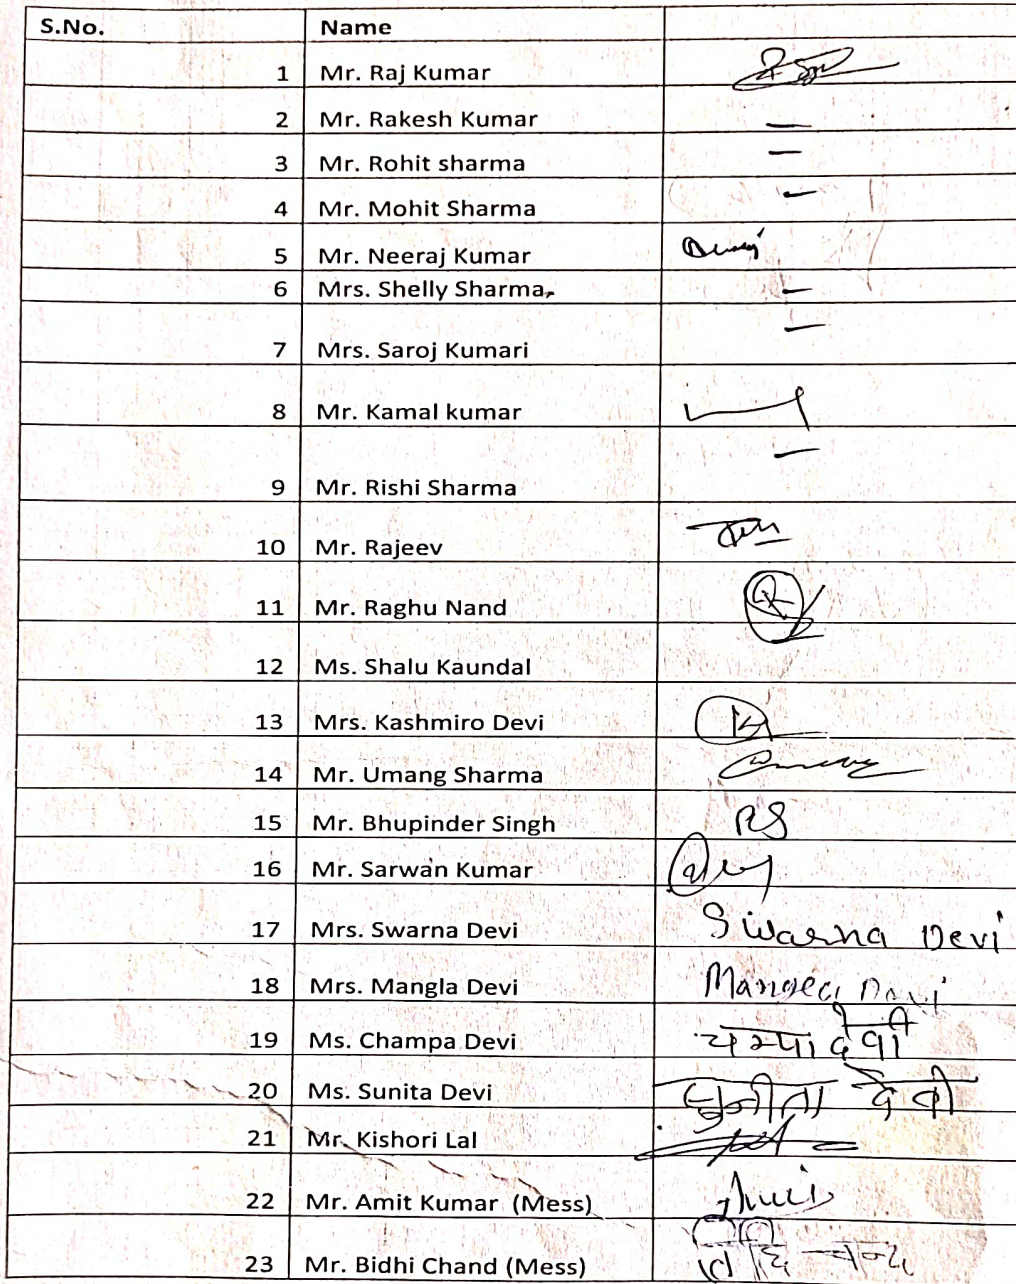 S.No. Name
1 Mr. Raj Kumar
2 Mr. Rakesh Kumar —
3 Mr. Rohit sharma —
4 Mr. Mohit Sharma —
5 Mr. Neeraj Kumar
6 Mrs. Shelly Sharma, —
7 Mrs. Saroj Kumari —
8 Mr. Kamal kumar
9 Mr. Rishi Sharma —
10 Mr. Rajeev
11 Mr. Raghu Nand
12 Ms. Shalu Kaundal
13 Mrs. Kashmiro Devi K
14 Mr. Umang Sharma
15 Mr. Bhupinder Singh BS
16 Mr. Sarwan Kumar
17 Mrs. Swarna Devi Swarna Devi
18 Mrs. Mangla Devi Mangla Devi
19 Ms. Champa Devi चम्पा देवी
20 Ms. Sunita Devi सुनीता देवी
21 Mr. Kishori Lal
22 Mr. Amit Kumar (Mess)
23 Mr. Bidhi Chand (Mess) विधि चन्द